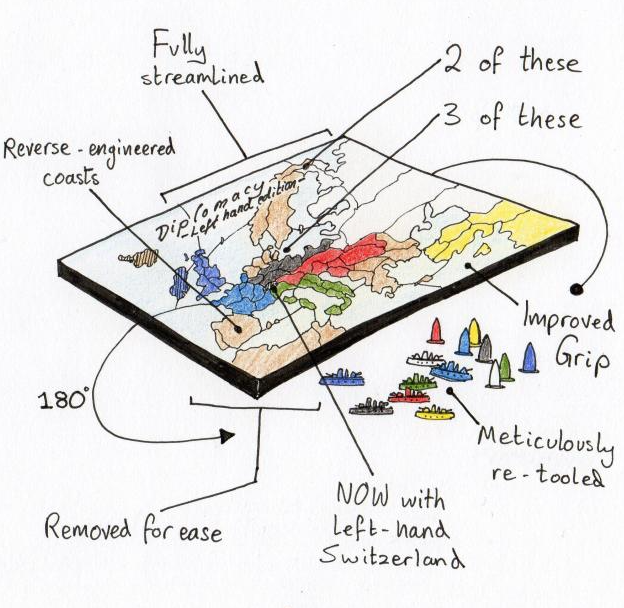 Fully
streamlined
2 of these
3 of these
Reverse-engineered
coasts
Diplomacy
Left hand edition
Improved
Grip
180°
Meticulously
re-tooled
NOW with
Left-hand
Switzerland
Removed for ease